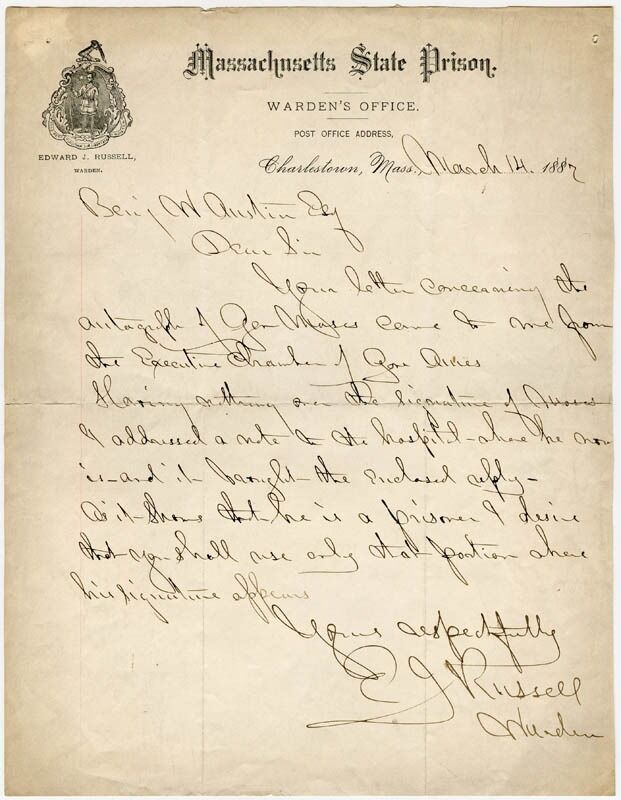 Massachusetts State Prison.
WARDEN'S OFFICE.
POST OFFICE ADDRESS,
EDWARD J. RUSSELL,
WARDEN.
Charlestown, Mass. March 14. 1887
Benj W Austin Esq
Dear Sir
Your letter concerning the
autograph of Gov Moses came to me from
the Executive Chamber of Gov Ames
Having nothing over the signature of Moses
I addressed a note to the hospital where he now
is and it brought the enclosed reply-
As it shows that he is a prisoner I desire
that you shall use only that portion where
his signature appears
Yours respectfully
E J Russell
Warden